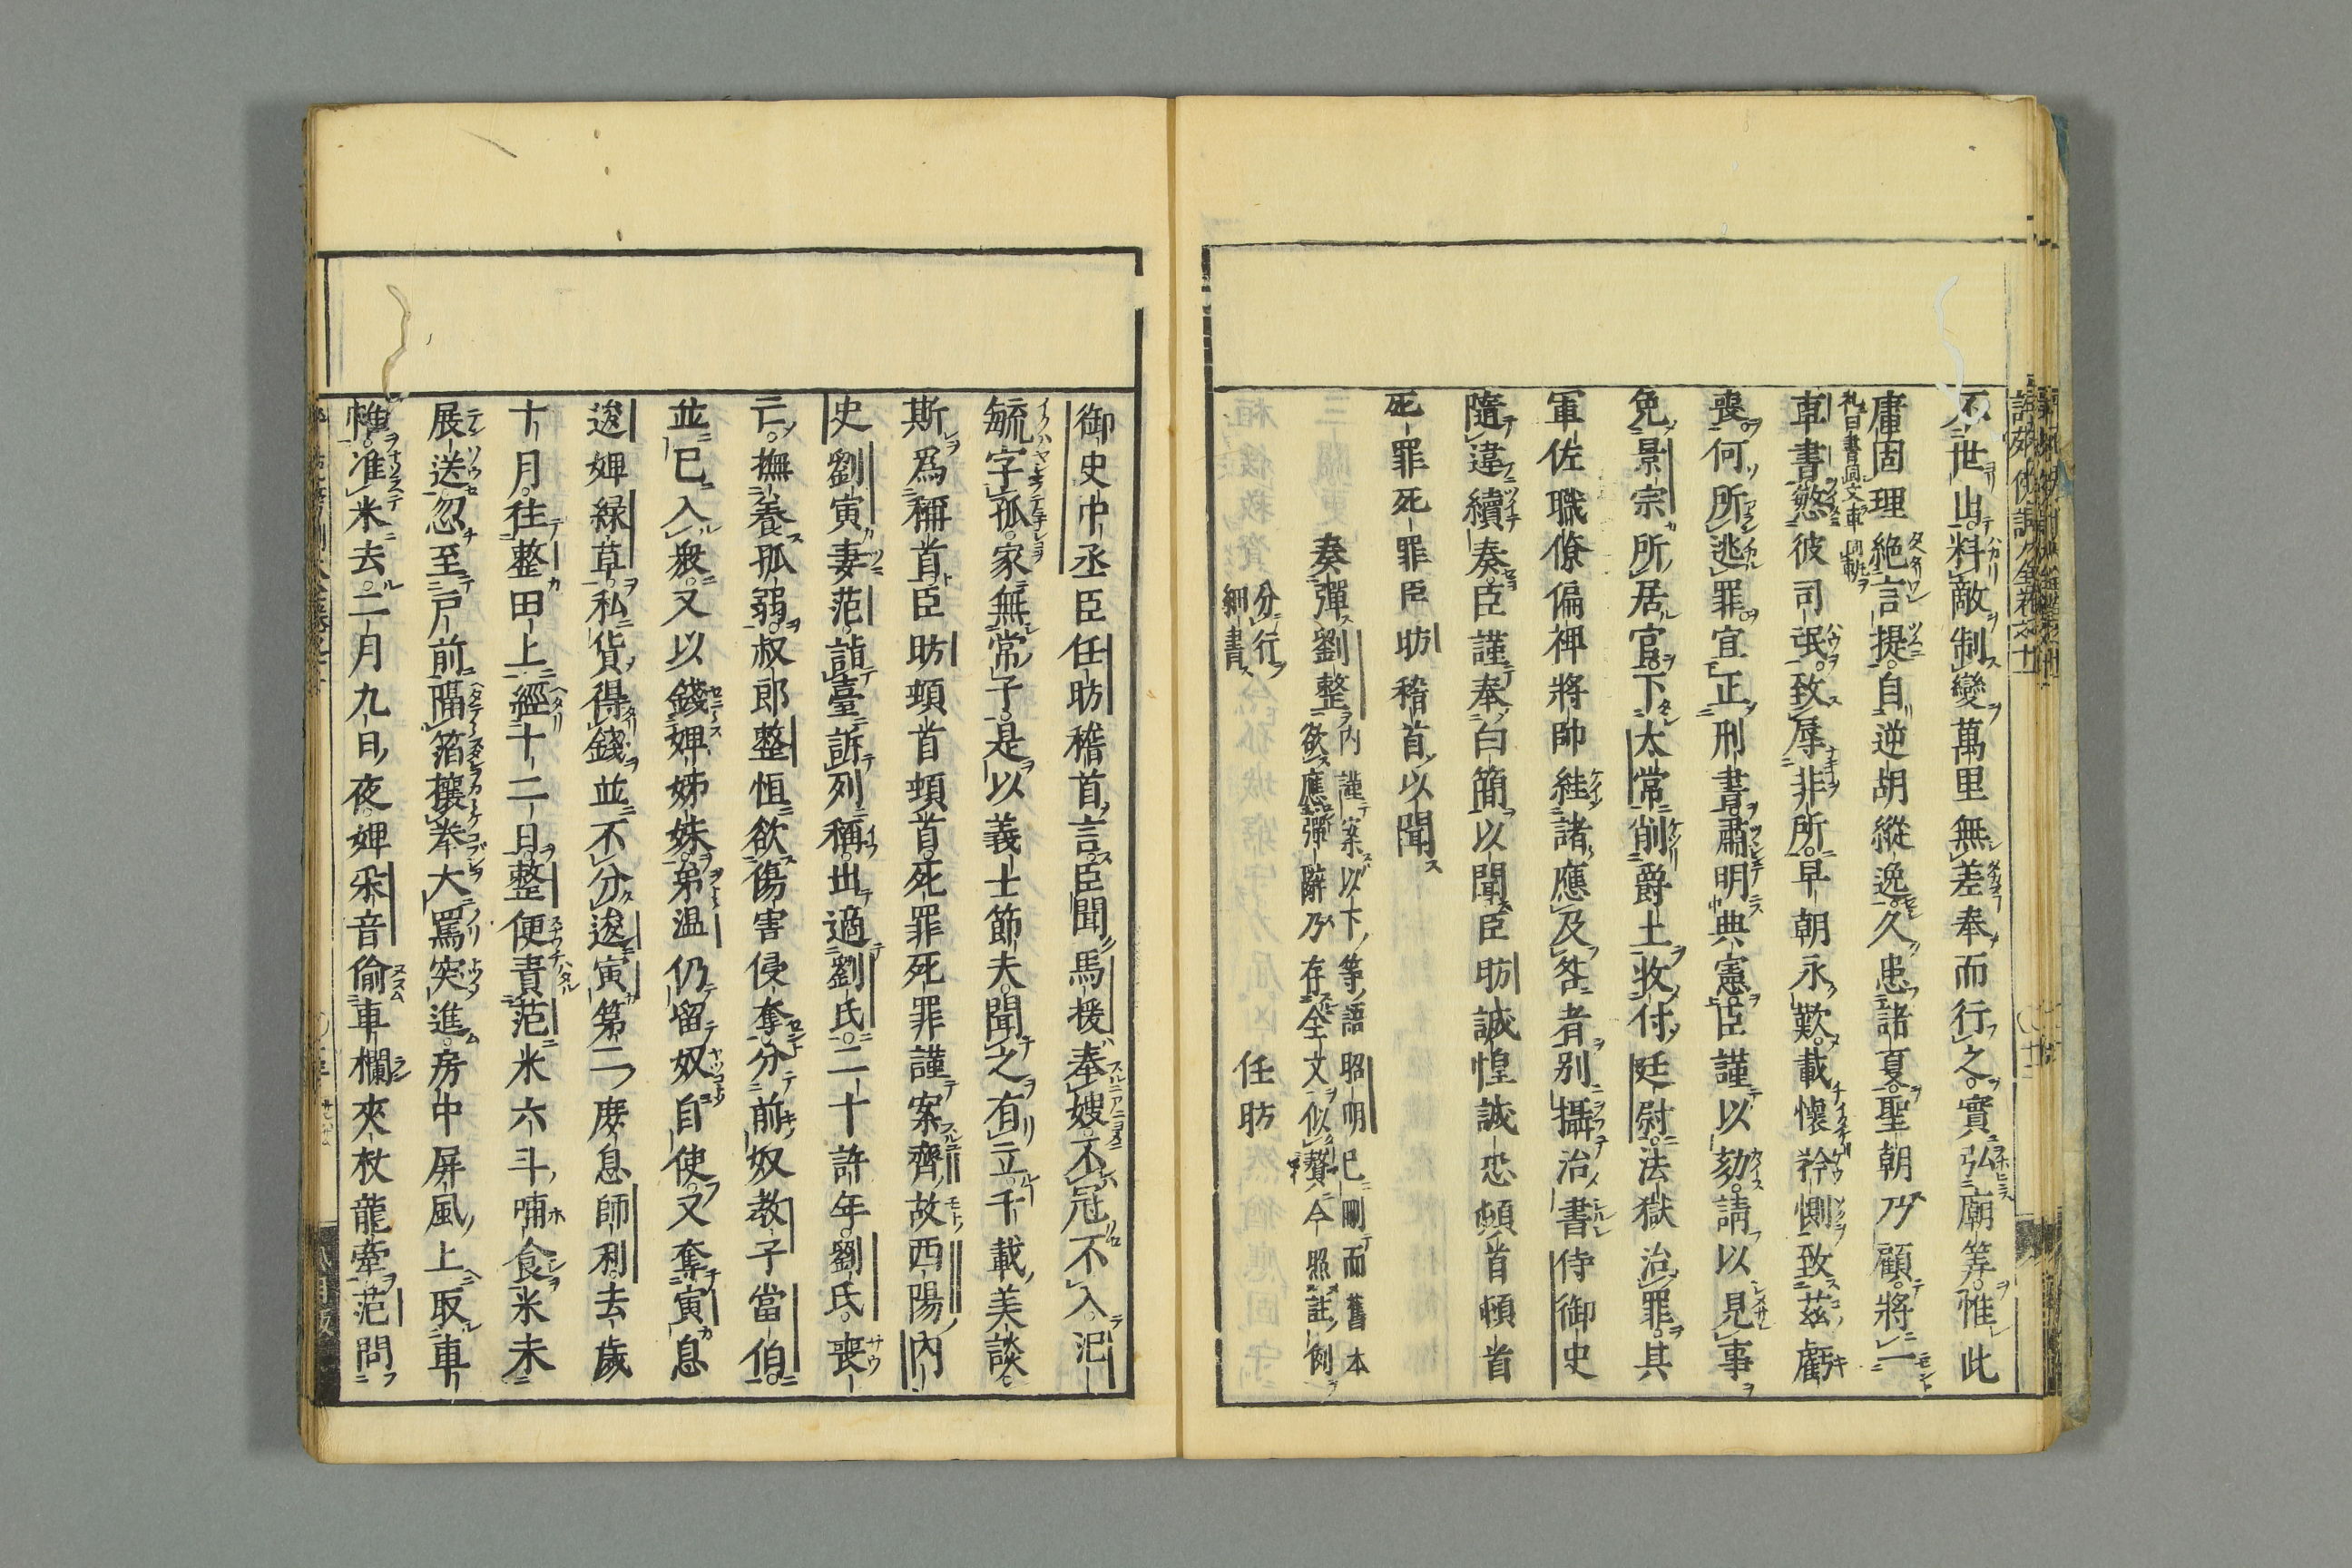 不世出料敵制變萬里無差奉而行之實弘廟筭惟此
庸固理絶言提自逆胡縱逸久患諸夏聖朝乃顧將一
車書愍彼司氓致辱非所早朝永歎載懷矜惻致茲虧
喪何所逃罪宜正刑書肅明典憲臣謹以劾請以見事
免景宗所居官下太常削爵土收付廷尉法獄治罪其
軍佐職僚偏裨將帥絓諸應及咎者別攝治書侍御史
隨違續奏臣謹奉白簡以聞臣昉誠惶誠恐頓首頓首
死罪死罪臣昉稽首以聞
奏彈劉整
内謹案以下等語昭明已刪而舊本
欲應彈辭乃存全文似贅今照註例
分行
細書
任昉
御史中丞臣任昉稽首言臣聞馬援奉嫂不冠不入汜
毓字孤家無常子是以義士節夫聞之有立千載美談
斯爲稱首臣昉頓首頓首死罪死罪謹案齊故西陽内
史劉寅妻范詣臺訴列稱出適劉氏二十許年劉氏喪
亡撫養孤弱叔郎整恒欲傷害侵奪分前奴教子當伯
並已入衆又以錢婢姊妹弟温仍留奴自使又奪寅息
逡婢緑草私貨得錢並不分逡寅第二庶息師利去歲
十月往整田上經十二日整便責范米六斗哺食米未
展送忽至戸前隔箔攘拳大罵突進房中屏風上取車
帷准米去二月九日夜婢采音偷車欄夾杖龍牽范問